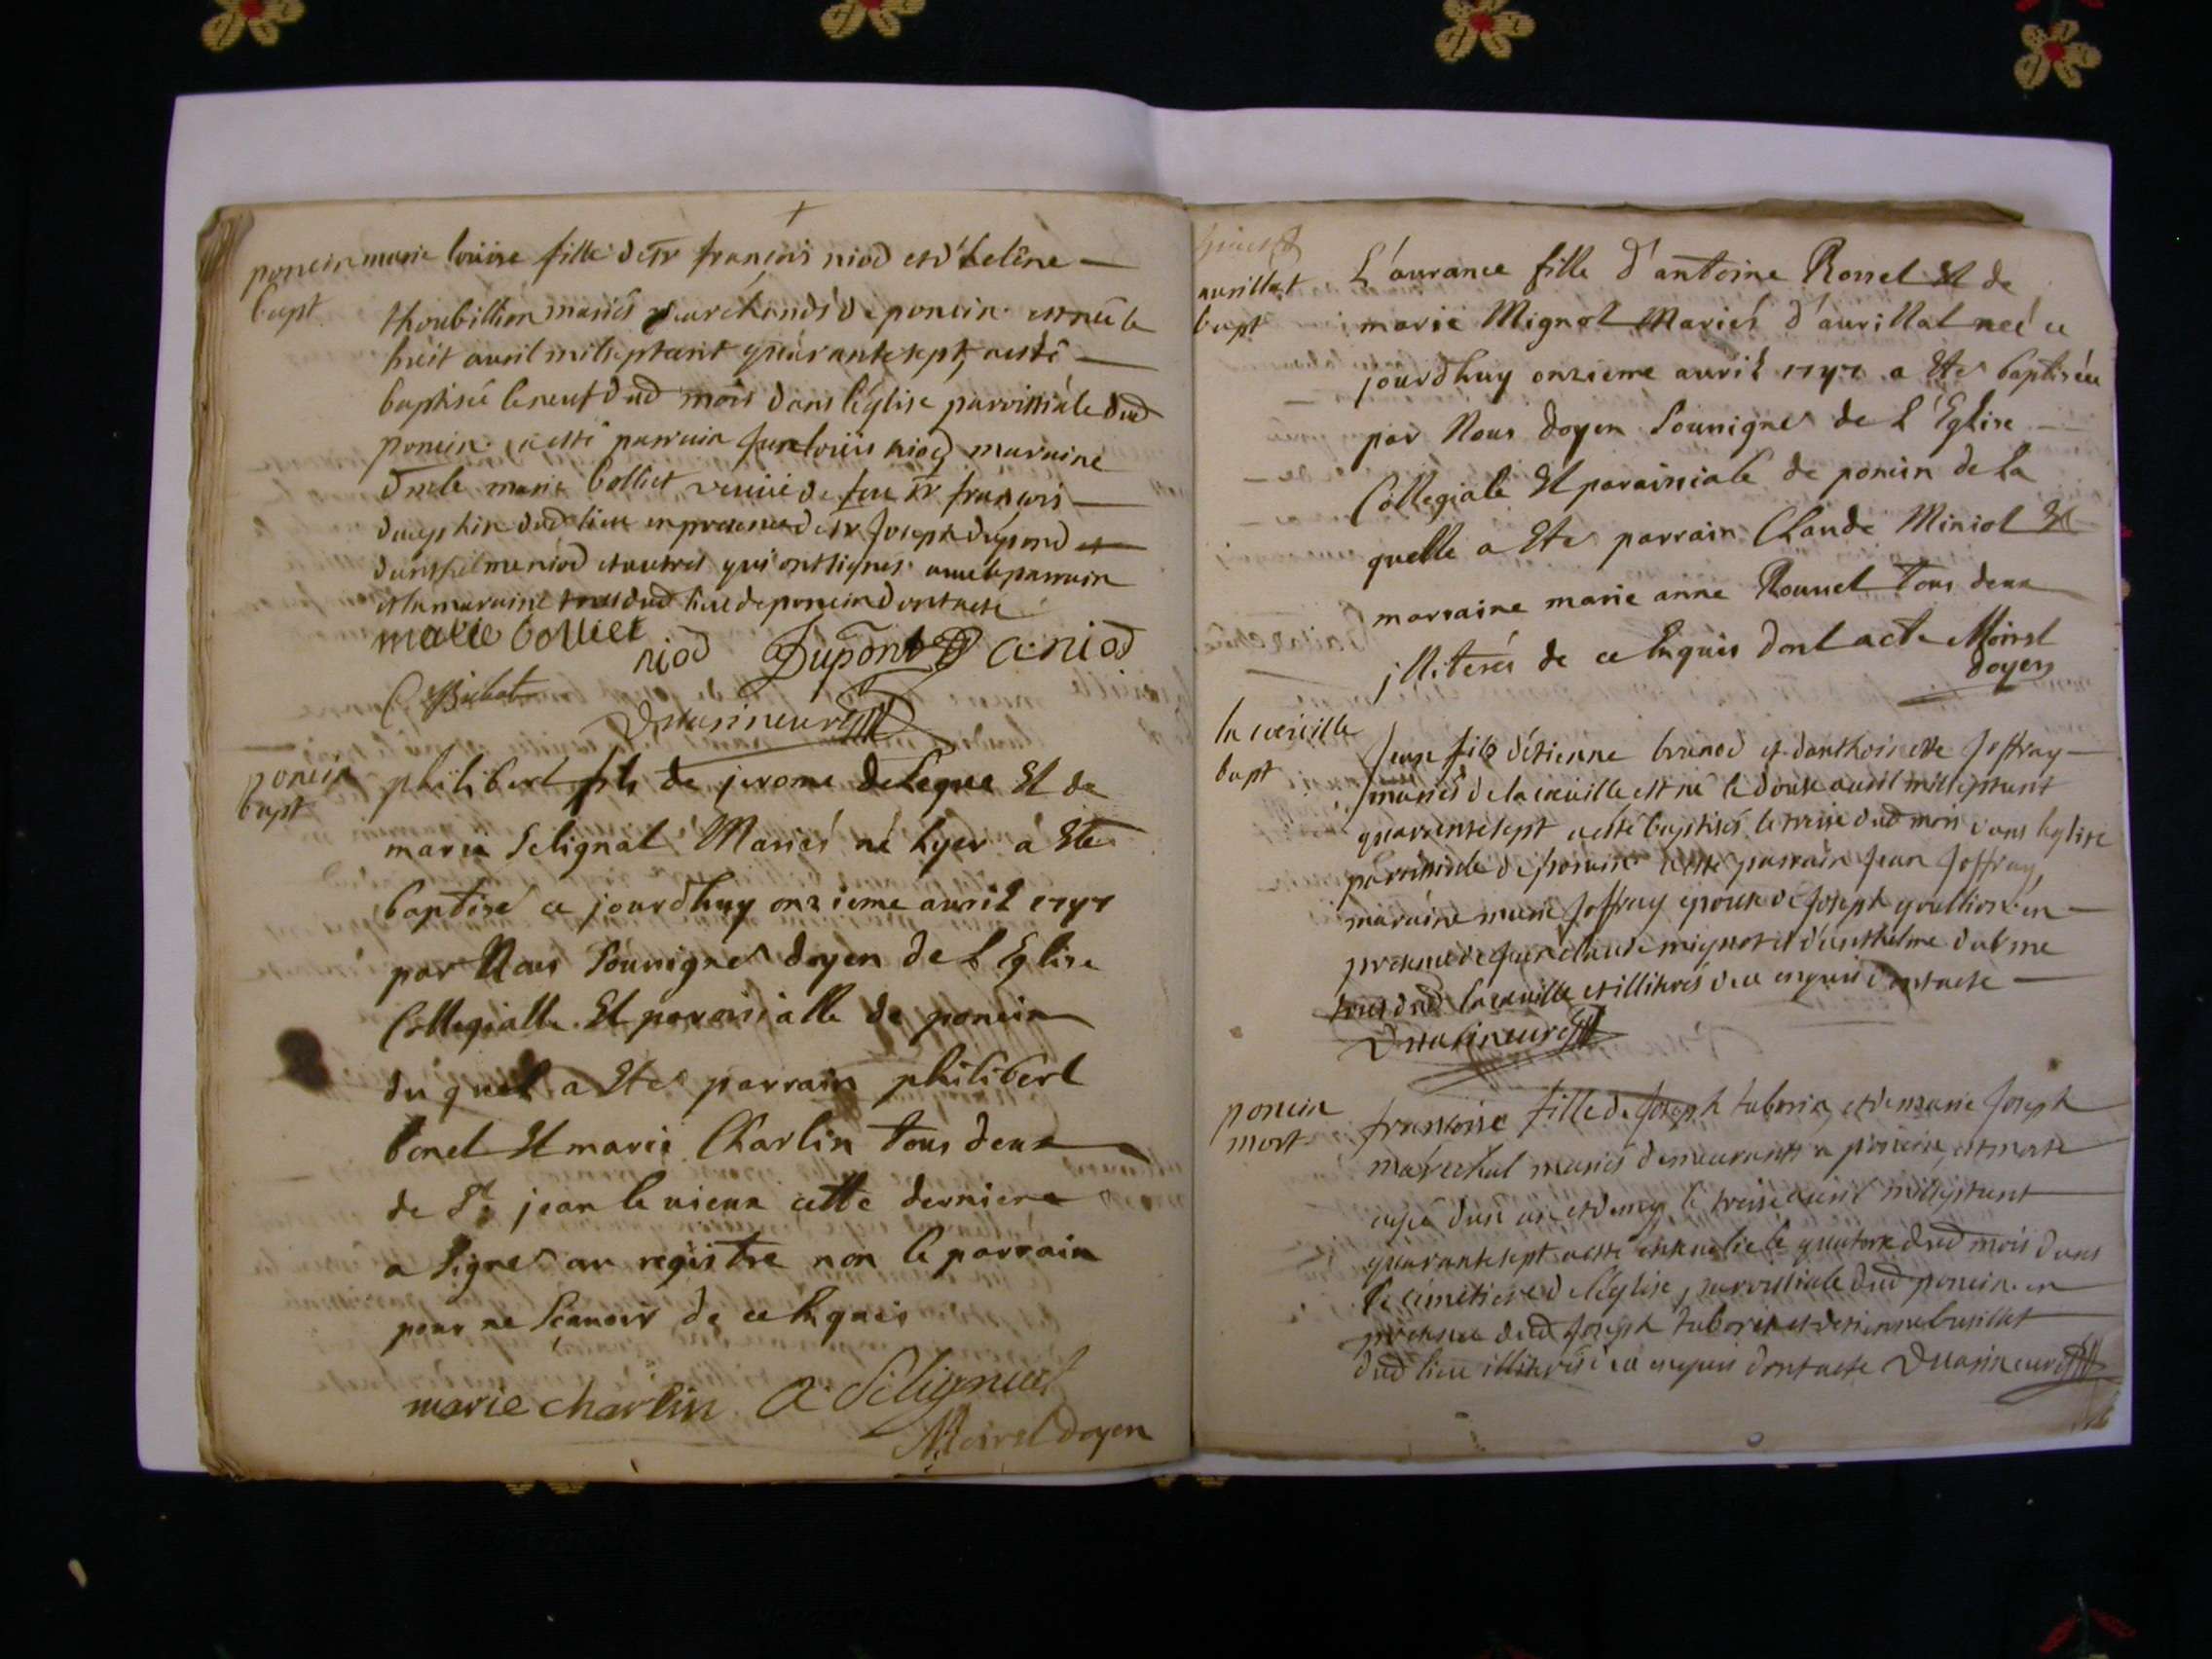 poncin marie loüise fille de sr françois niod et d'helêne
bapt thoubillion mariés marchands de poncin est née le
huit avril mil sept cent quarante sept, a esté
baptisée le neuf dud mois dans l'église parroissiale dud
poncin. a esté parrain jean loüis niod maraine
dmelle marie bolliet veuüe de feu sr françois
dud lieu en presence de sr joseph dupond et
d'anthelme niod et autres qui ont signés avec le parrain
et la maraine tous dud lieu de poncin dont acte
marie bolliet niod Dupont a niod
C Bichat
Duvasineur
poncin philibert fils de jerome deleque Et de
bapt marie Selignat Mariés né hyer a Ete
baptisé ce jourdhuy onzieme avril 1747
par Nous Soussigné doyen de L Eglise
Collegialle Et paroisialle de poncin
du quel a Eté parrain philibert
bonet Et marie Charlin tous deux
de St jean le vieux cette derniere
a Signé au registre non le parrain
pour ne Sçavoir de ce Enquis
marie charlin a Selignat
Moirel doyen
aurillat L'aurance fille d'antoine Rossel Et de
bapt marie Mignot Mariés d'aurillat neé ce
jourdhuy onzieme avril 1747 a Eté baptiseé
par Nous doyen Soussigné de L'Eglise
Collegiale Et paroissiale de poncin de La
quelle a Eté parrain Claude Miniot Et
marraine marie anne Roussel tous deux
illiterés de ce Enquis dont acte Moirel
doyen
la cueille
bapt jean fils d'etienne brunod et d'anthoinette joffray
mariés de la cueille est né le douze avril mil sept cent
quarante sept a esté baptisé le treise dud mois dans l'eglise
parroissiale de poncin a esté parrain jean joffray,
maraine marie joffray epouse de joseph goullion en
presence de jean claude mignot et d'anthelme
tous dud la cueille et illiterés de ce enquis dont acte
Duvasineur
poncin françoise fille de joseph taborin, et de marie joseph
mort maréchal mariés demeurants a poncin, est morte
agée d'un an et demy le treise avril mil sept cent
quarante sept a esté ensevelie le quatorze dud mois dans
le cimetiere de l'église parroissiale dud poncin en
presence dud joseph taborin et d'etienne busillet
dud lieu illiterés de ce enquis dont acte Duvasineur